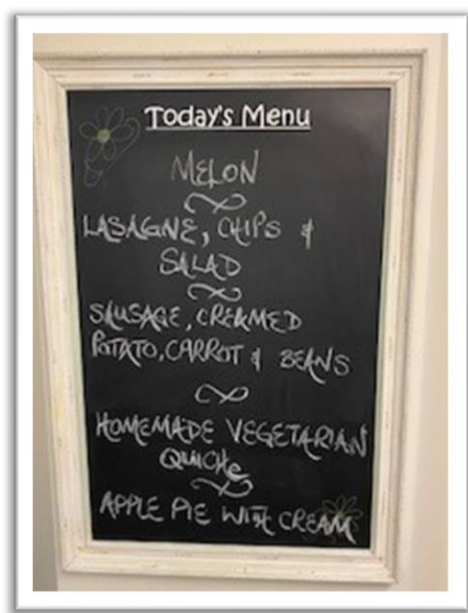 Today's Menu
MELON
LASAGNE, CHIPS &
SALAD
SAUSAGE, CREAMED
POTATO, CARROT & BEANS
HOMEMADE VEGETARIAN
QUICHE
APPLE PIE WITH CREAM